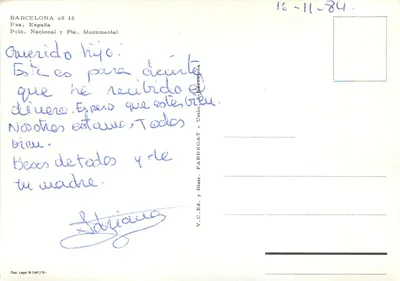 BARCELONA nº 15
Pza. España
Palc. Nacional y Fte. Monumental
16-11-84.
Querido hijo:
Esta es para decirte
que he recibido el
dinero. Espero que estes bien.
Nosotros estamos Todos
bien.
Besos de todos y de
tu madre.
Adriana
V.C. Ed. y Distr. FABREGAT - Unión
Dep. Legal B-